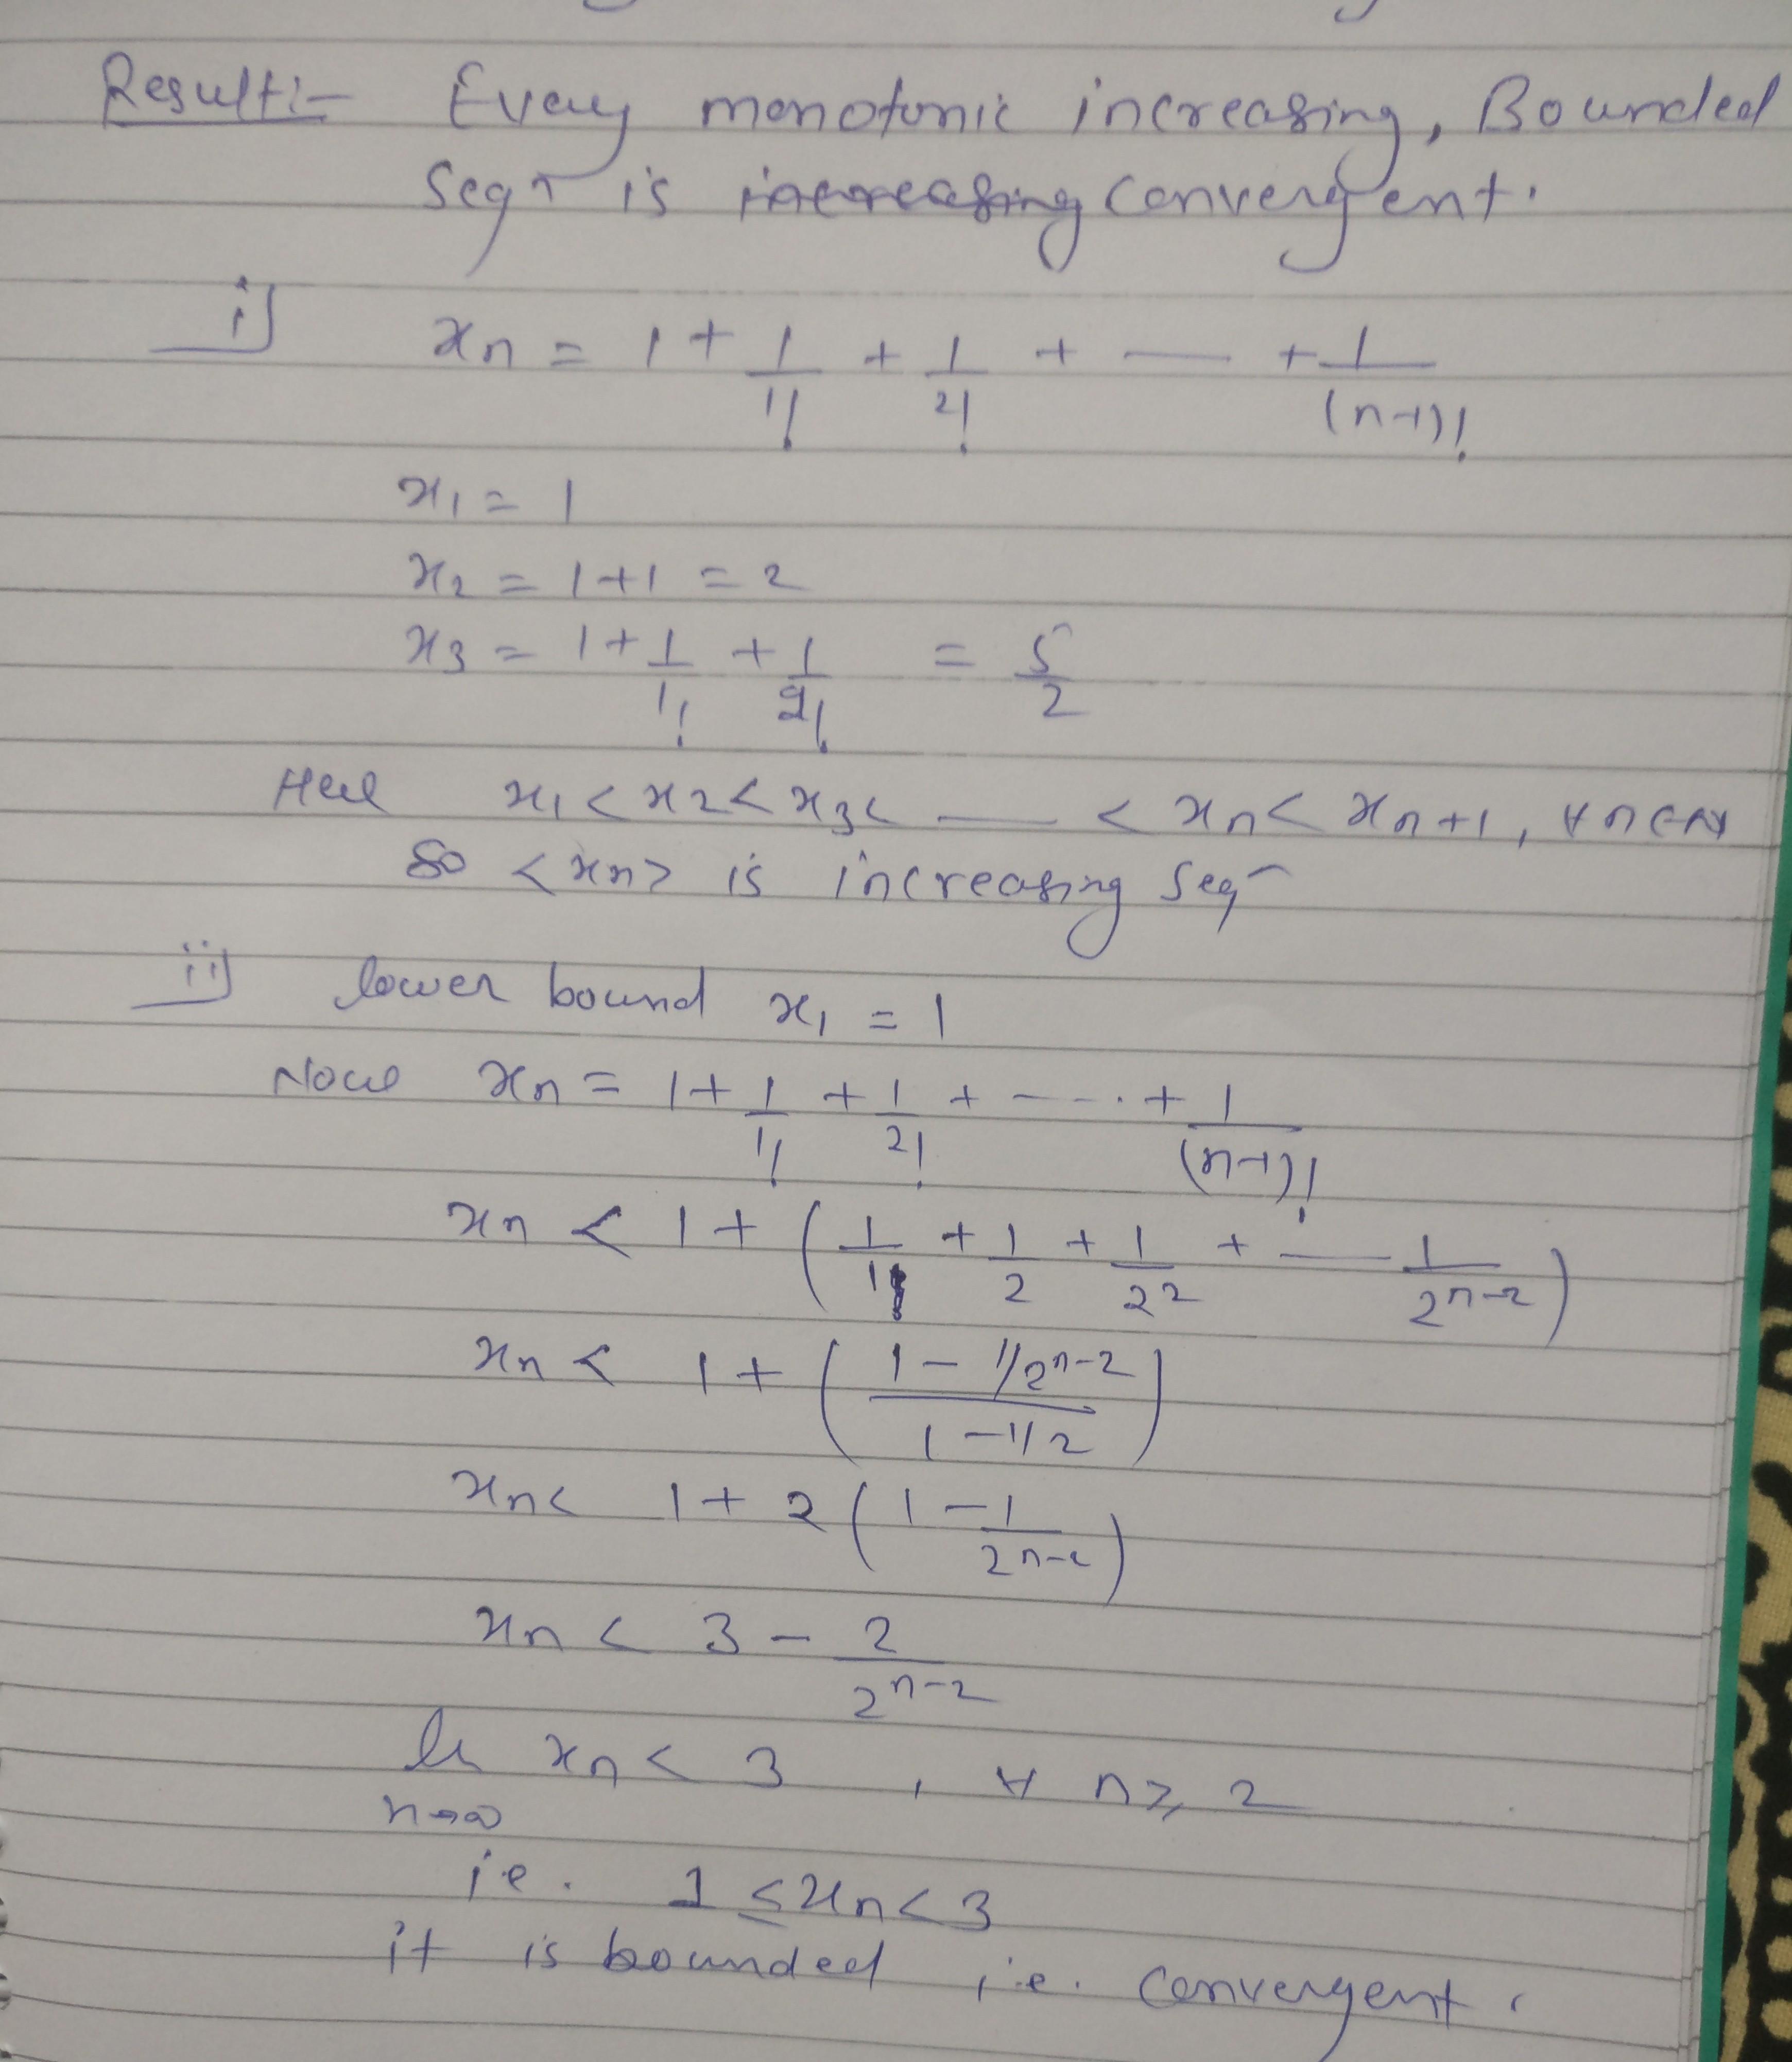 Result:- Every monotonic increasing, Bounded
Seqn is increasing convergent.
i) xn = 1 + 1/1! + 1/2! + — + 1/(n-1)!
x1 = 1
x2 = 1+1 = 2
x3 = 1 + 1/1! + 1/2! = 5/2
Here x1 < x2 < x3 < — < xn < xn+1, ∀ n ∈ N
So <xn> is increasing Seq
ii) lower bound x1 = 1
Now xn = 1 + 1/1! + 1/2! + ---- + 1/(n-1)!
xn < 1 + ( 1/1! + 1/2 + 1/2² + — 1/2ⁿ⁻² )
xn < 1 + ( (1 - 1/2ⁿ⁻²) / (1 - 1/2) )
xn < 1 + 2 ( 1 - 1/2ⁿ⁻² )
xn < 3 - 2/2ⁿ⁻²
xn < 3 , ∀ n ≥ 2
n→∞
i.e. 1 ≤ xn < 3
it is bounded i.e. convergent.